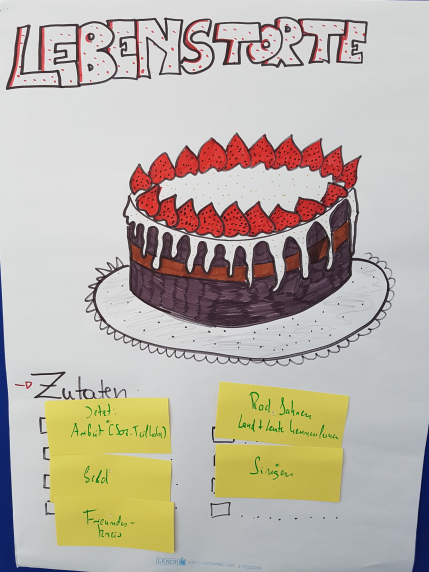 LEBENSTORTE
Zutaten:
Jetzt:
Geld
Freundes-
kreis
Rad fahren
Land + Leute kennenlernen
Singen